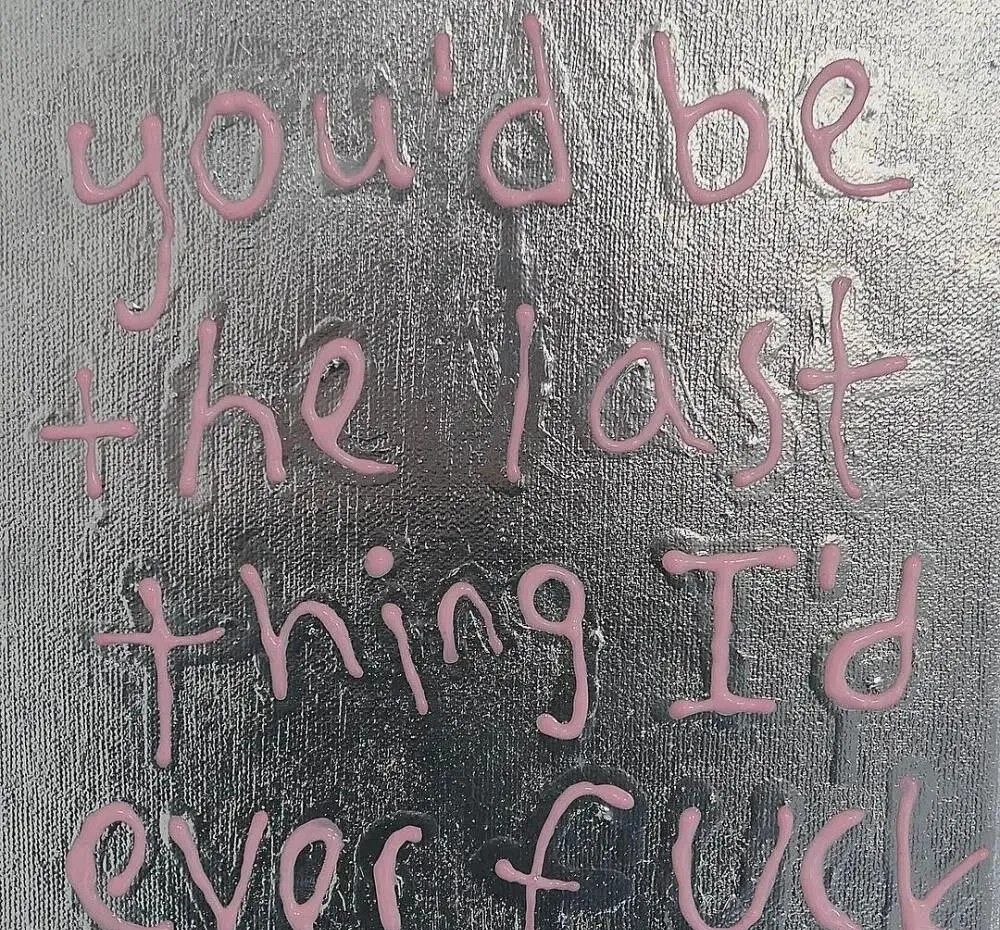 you'd be
the last
thing I'd
ever fuck